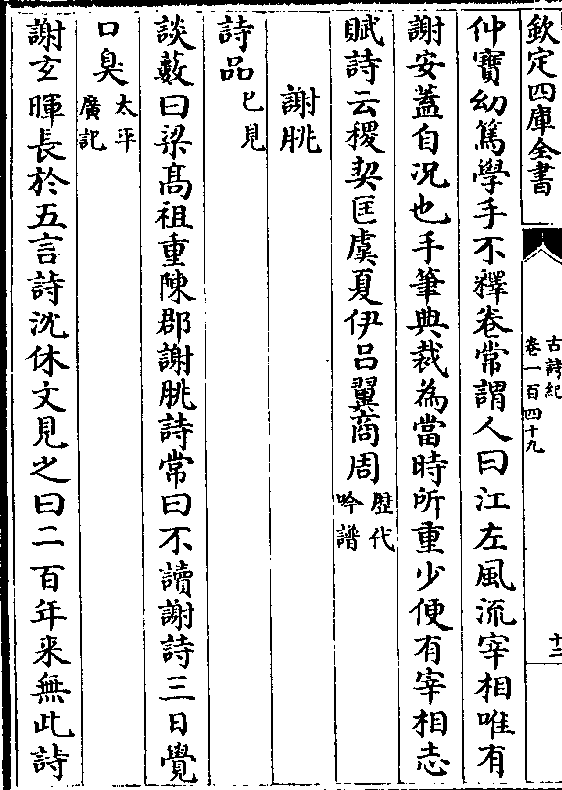 欽定四庫全書
古詩紀
卷一百四十九
十二
仲寶幼篤學手不釋卷常謂人曰江左風流宰相唯有
謝安蓋自况也手筆典裁為當時所重少便有宰相志
賦詩云稷契匡虞夏伊吕翼商周歴代吟譜
謝朓
詩品已見
談藪曰梁髙祖重陳郡謝朓詩常曰不讀謝詩三日覺
口臭太平廣記
謝玄暉長於五言詩沈休文見之曰二百年来無此詩